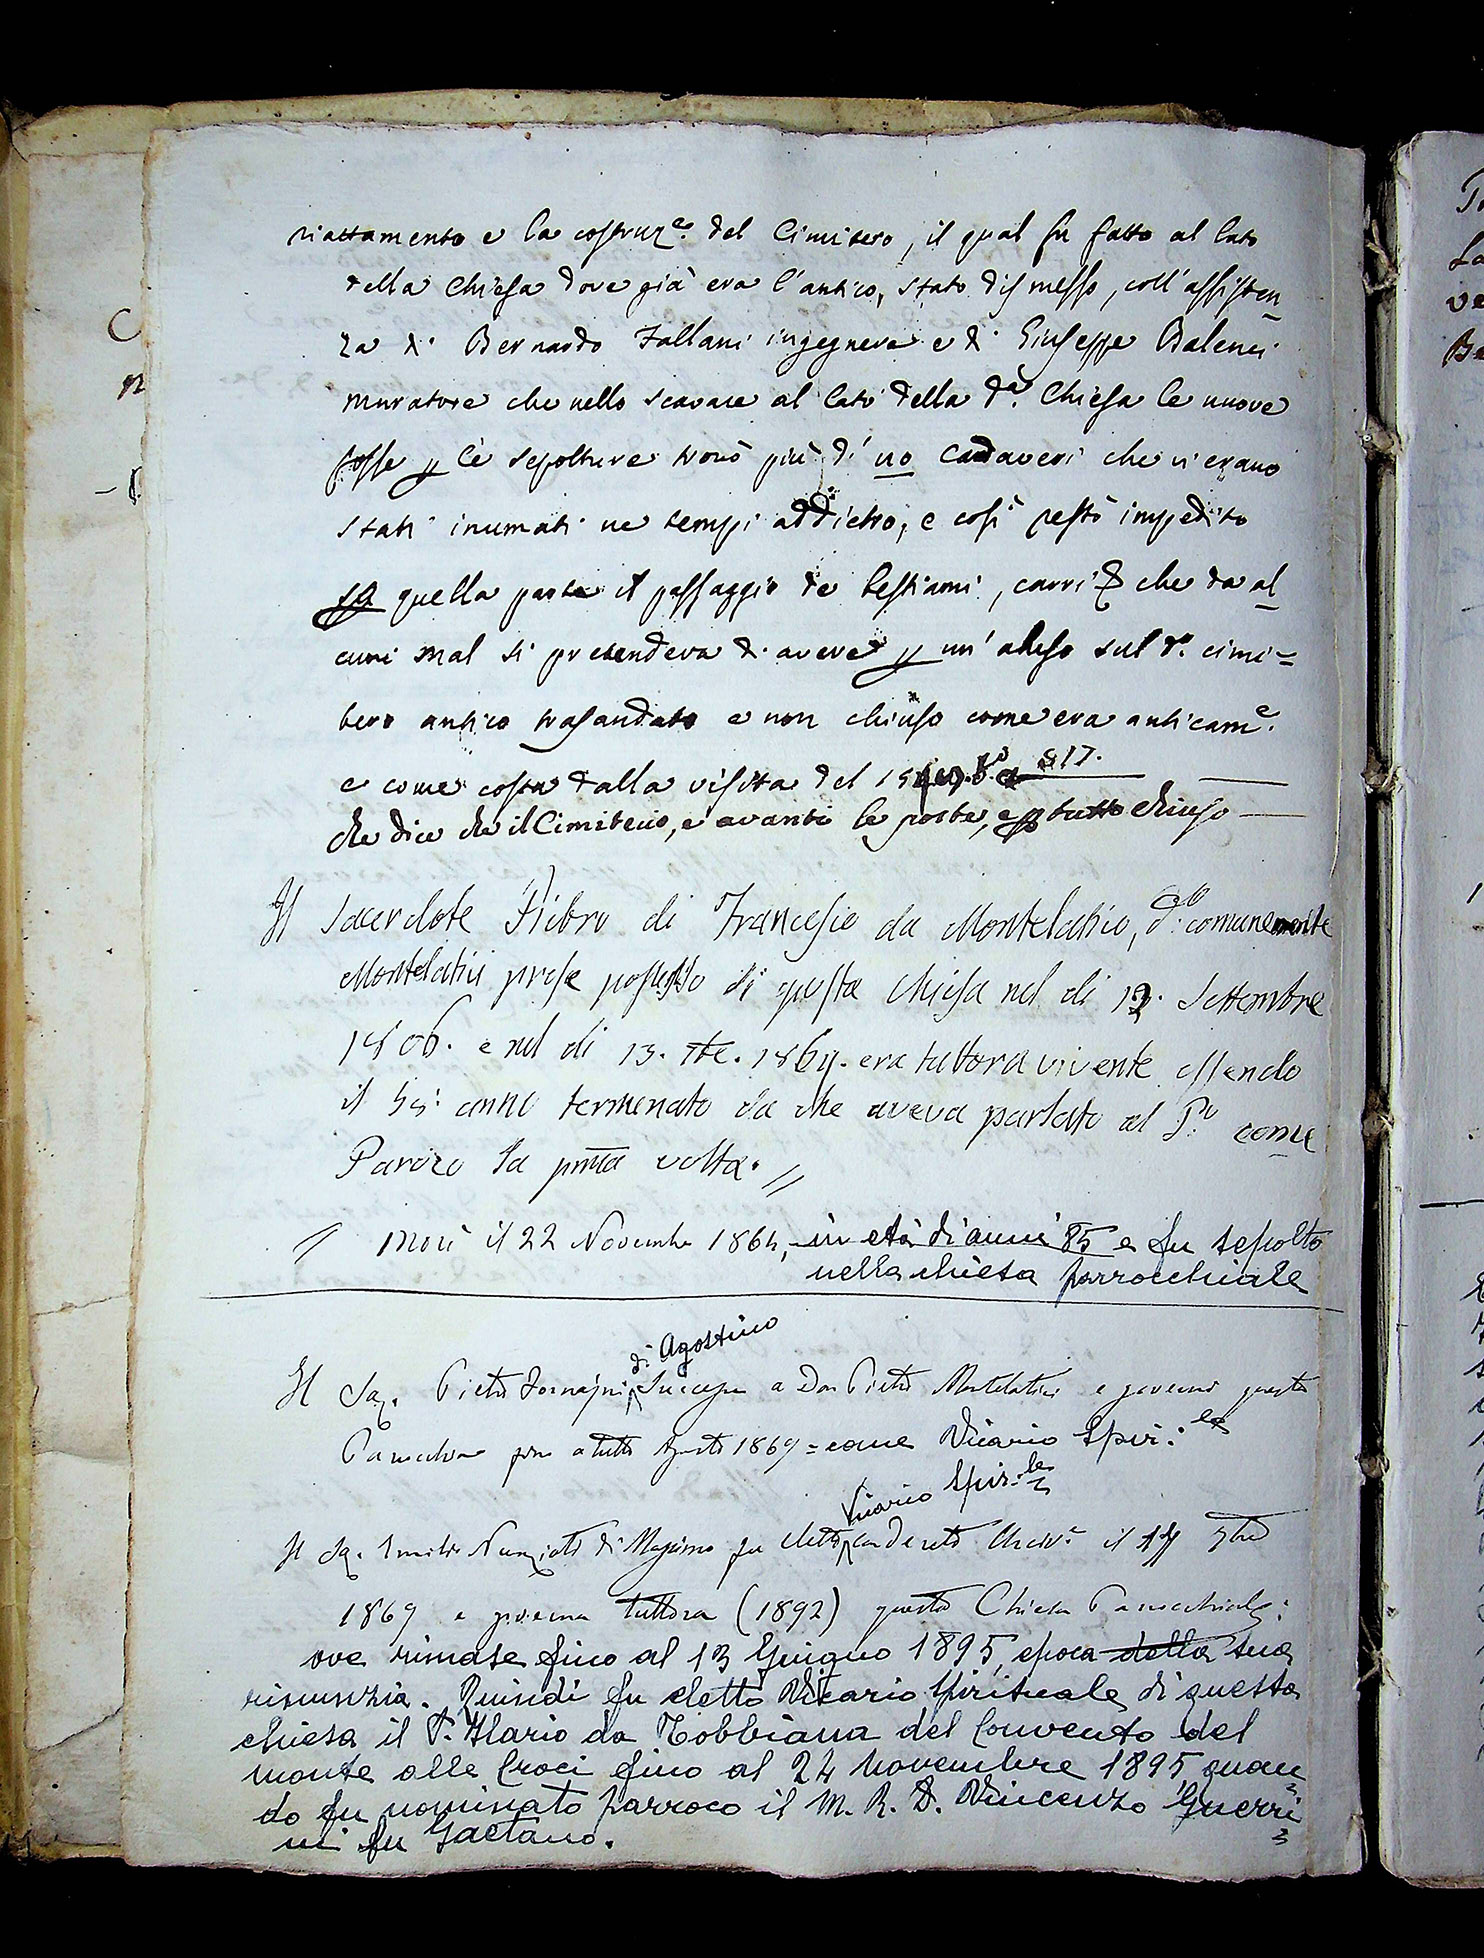 riattamento e la costruz.e del Cimitero, il qual fu fatto al lato
della Chiesa dove già era l'antico, stato dismesso, coll'assisten
za di Bernardo Fallani ingegnere e di Giuseppe Balenci
muratore che nello scavare al lato della d.a Chiesa le nuove
fosse p le sepolture trovò più di no cadaveri che vi erano
stati inumati ne tempi addietro, e così restò impedito
da quella parte il passaggio de bestiami, carri & che da al
cuni mal si pretendeva di avere p un' abuso sul d.o cimi=
tero antico trasandato e non chiuso come era anticam.e
e come costa dalla visita del 517.
che dice che il Cimiterio, e avanti le porte, e p tutto chiuso
Il Sacerdote Pietro di Francesco da Montelatico, d.o comunemente
Montelatici prese possesso di questa Chiesa nel di 13. Settembre
1806. e nel di 13. 7bre. 1864. era tuttora vivente essendo
il anno terminato da che aveva parlato al P.o come
Paroco la prima volta. //
// Morì il 22 Novembre 1864, in età di anni 85 e fu sepolto
nella chiesa parrocchiale
di Agostino
Il Sac. Pietro Fornajni successe a Don Pietro Montelatici e governò questa
Parrocchia fino a tutto Agosto 1869 = come Vicario Spir.le
Vicario Spir.le
Il Sac. Emilio Nunziati di Massimo fu eletto con Decreto Arciv.e il 17 9bre
1869 e governa tuttora (1892) questa Chiesa Parrocchiale:
ove rimase fino al 13 Giugno 1895, epoca della sua
rinunzia. Quindi fu eletto Vicario Spirituale di questa
chiesa il P. Ilario da Tobbiana del Convento del
monte alle Croci fino al 24 Novembre 1895 quan
do fu nominato parroco il M. R. D. Vincenzo Guerri
ni fu Gaetano.